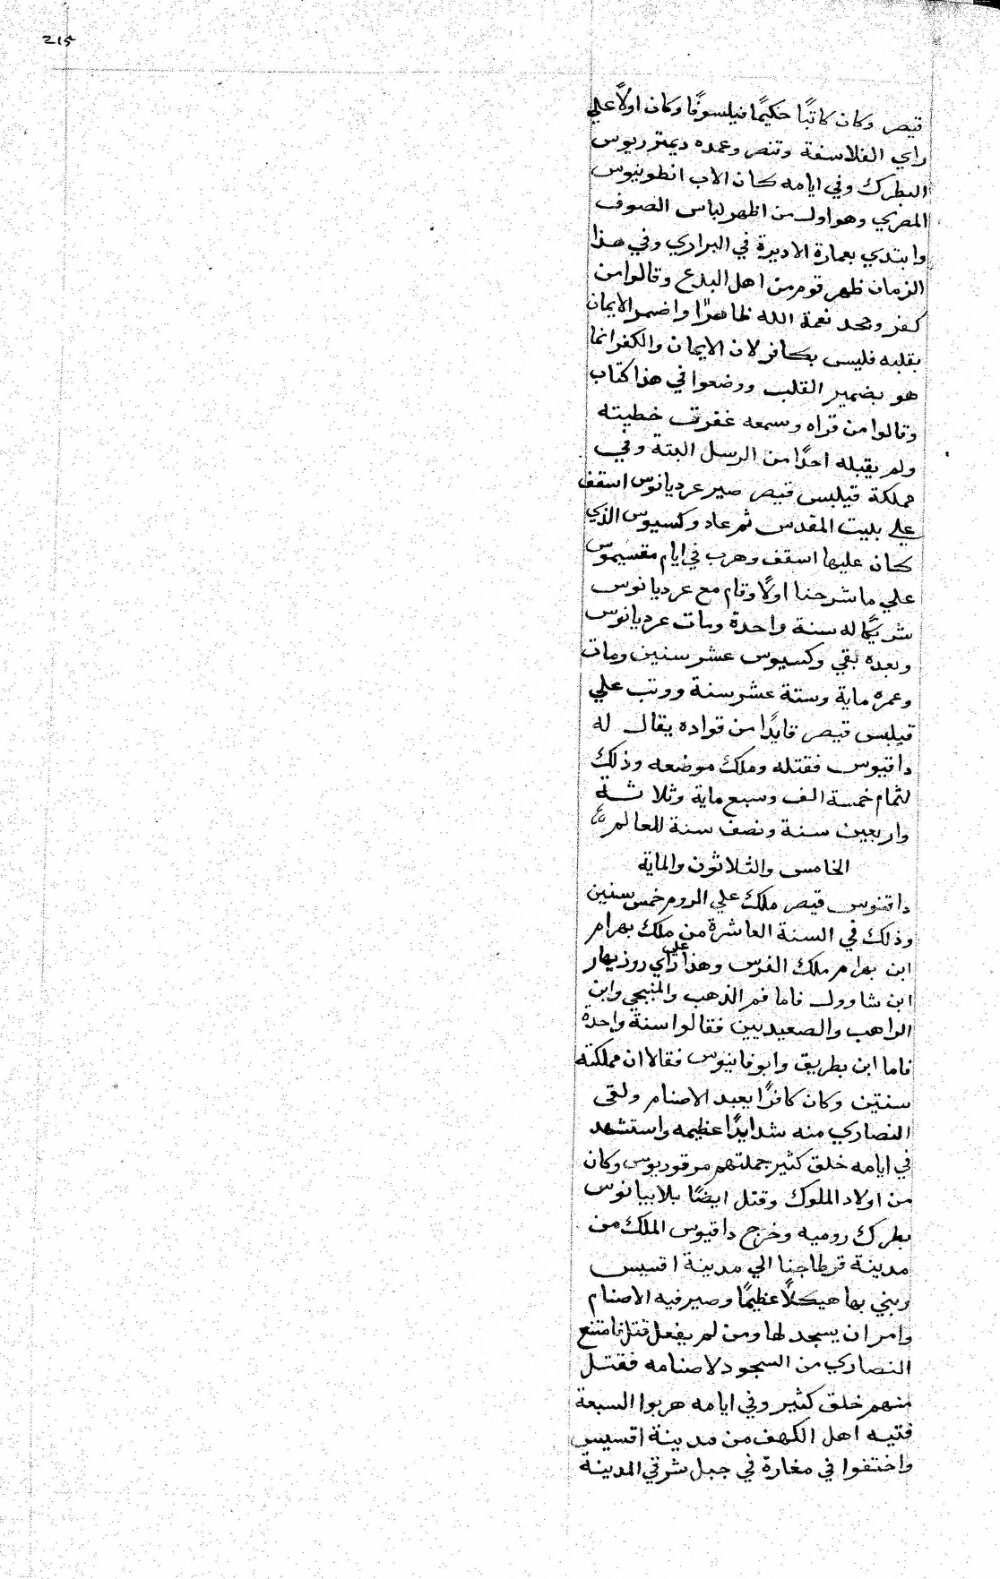 215
قيصر وكان كاتبًا حكيمًا فيلسوفًا وكان اولًا علي
راي الفلاسفة وتنصر وعمده ديمتريوس
البطرك وفي ايامه كان الاب انطونيوس
المصري وهو اول من اظهر لباس الصوف
وابتدي بعمارة الاديرة في البراري وفي هذا
الزمان ظهر قوم من اهل البدع وقالوا من
كفر وجحد نعمة الله ظاهرًا واضمر الايمان
بقلبه فليس بكافر لان الايمان والكفر انما
هو بضمير القلب ووضعوا في هذا كتاب
وقالوا من قراه وسمعه غفرت خطيته
ولم يقبله احدًا من الرسل البتة وفي
مملكة فيلبس قيصر صير عرديانوس اسقف
علي بليت المقدس ثم عاد وكسيوس الذي
كان عليها اسقف وهرب في ايام مقسيموس
علي ما شرحنا اولًا وقام مع عرديانوس
شريكًا له سنة واحدة ومات عرديانوس
وبعده بقي وكسيوس عشر سنين ومات
وعمره ماية وستة عشر سنة ووثب علي
فيلبس قيصر قايدًا من قواده يقال له
داقيوس فقتله وملك موضعه وذلك
لتمام خمسة الف وسبع ماية وثلاثة
واربعين سنة ونصف سنة للعالم
الخامس والثلاثون والماية
داقنوس قيصر ملك علي الروم خمس سنين
وذلك في السنة العاشرة من ملك بهرام
ابن بهرام ملك الفرس وهذا علي راي روزبهار
ابن شاوول فاما فم الذهب والمنبجي وابن
الراهب والصعيديين فقالوا سنة واحدة
فاما ابن بطريق وابوفانيوس فقالا ان مملكته
سنتين وكان كافرًا يعبد الاصنام ولقي
النصاري منه شدايدًا عظيمه واستشهد
في ايامه خلق كثير جملتهم مرقوريوس وكان
من اولاد الملوك وقتل ايضًا بلابيانوس
بطرك روميه وخرج داقيوس الملك من
مدينة قرطاجنا الي مدينة افسس
وبني بها هيكلًا عظيمًا وصير فيه الاصنام
وامر ان يسجد لها ومن لم يفعل قتل فامتنع
النصاري من السجود لاصنامه فقتل
منهم خلق كثير وفي ايامه هربوا السبعة
فتيه اهل الكهف من مدينة افسيس
واختفوا في مغارة في جبل شرقي المدينة